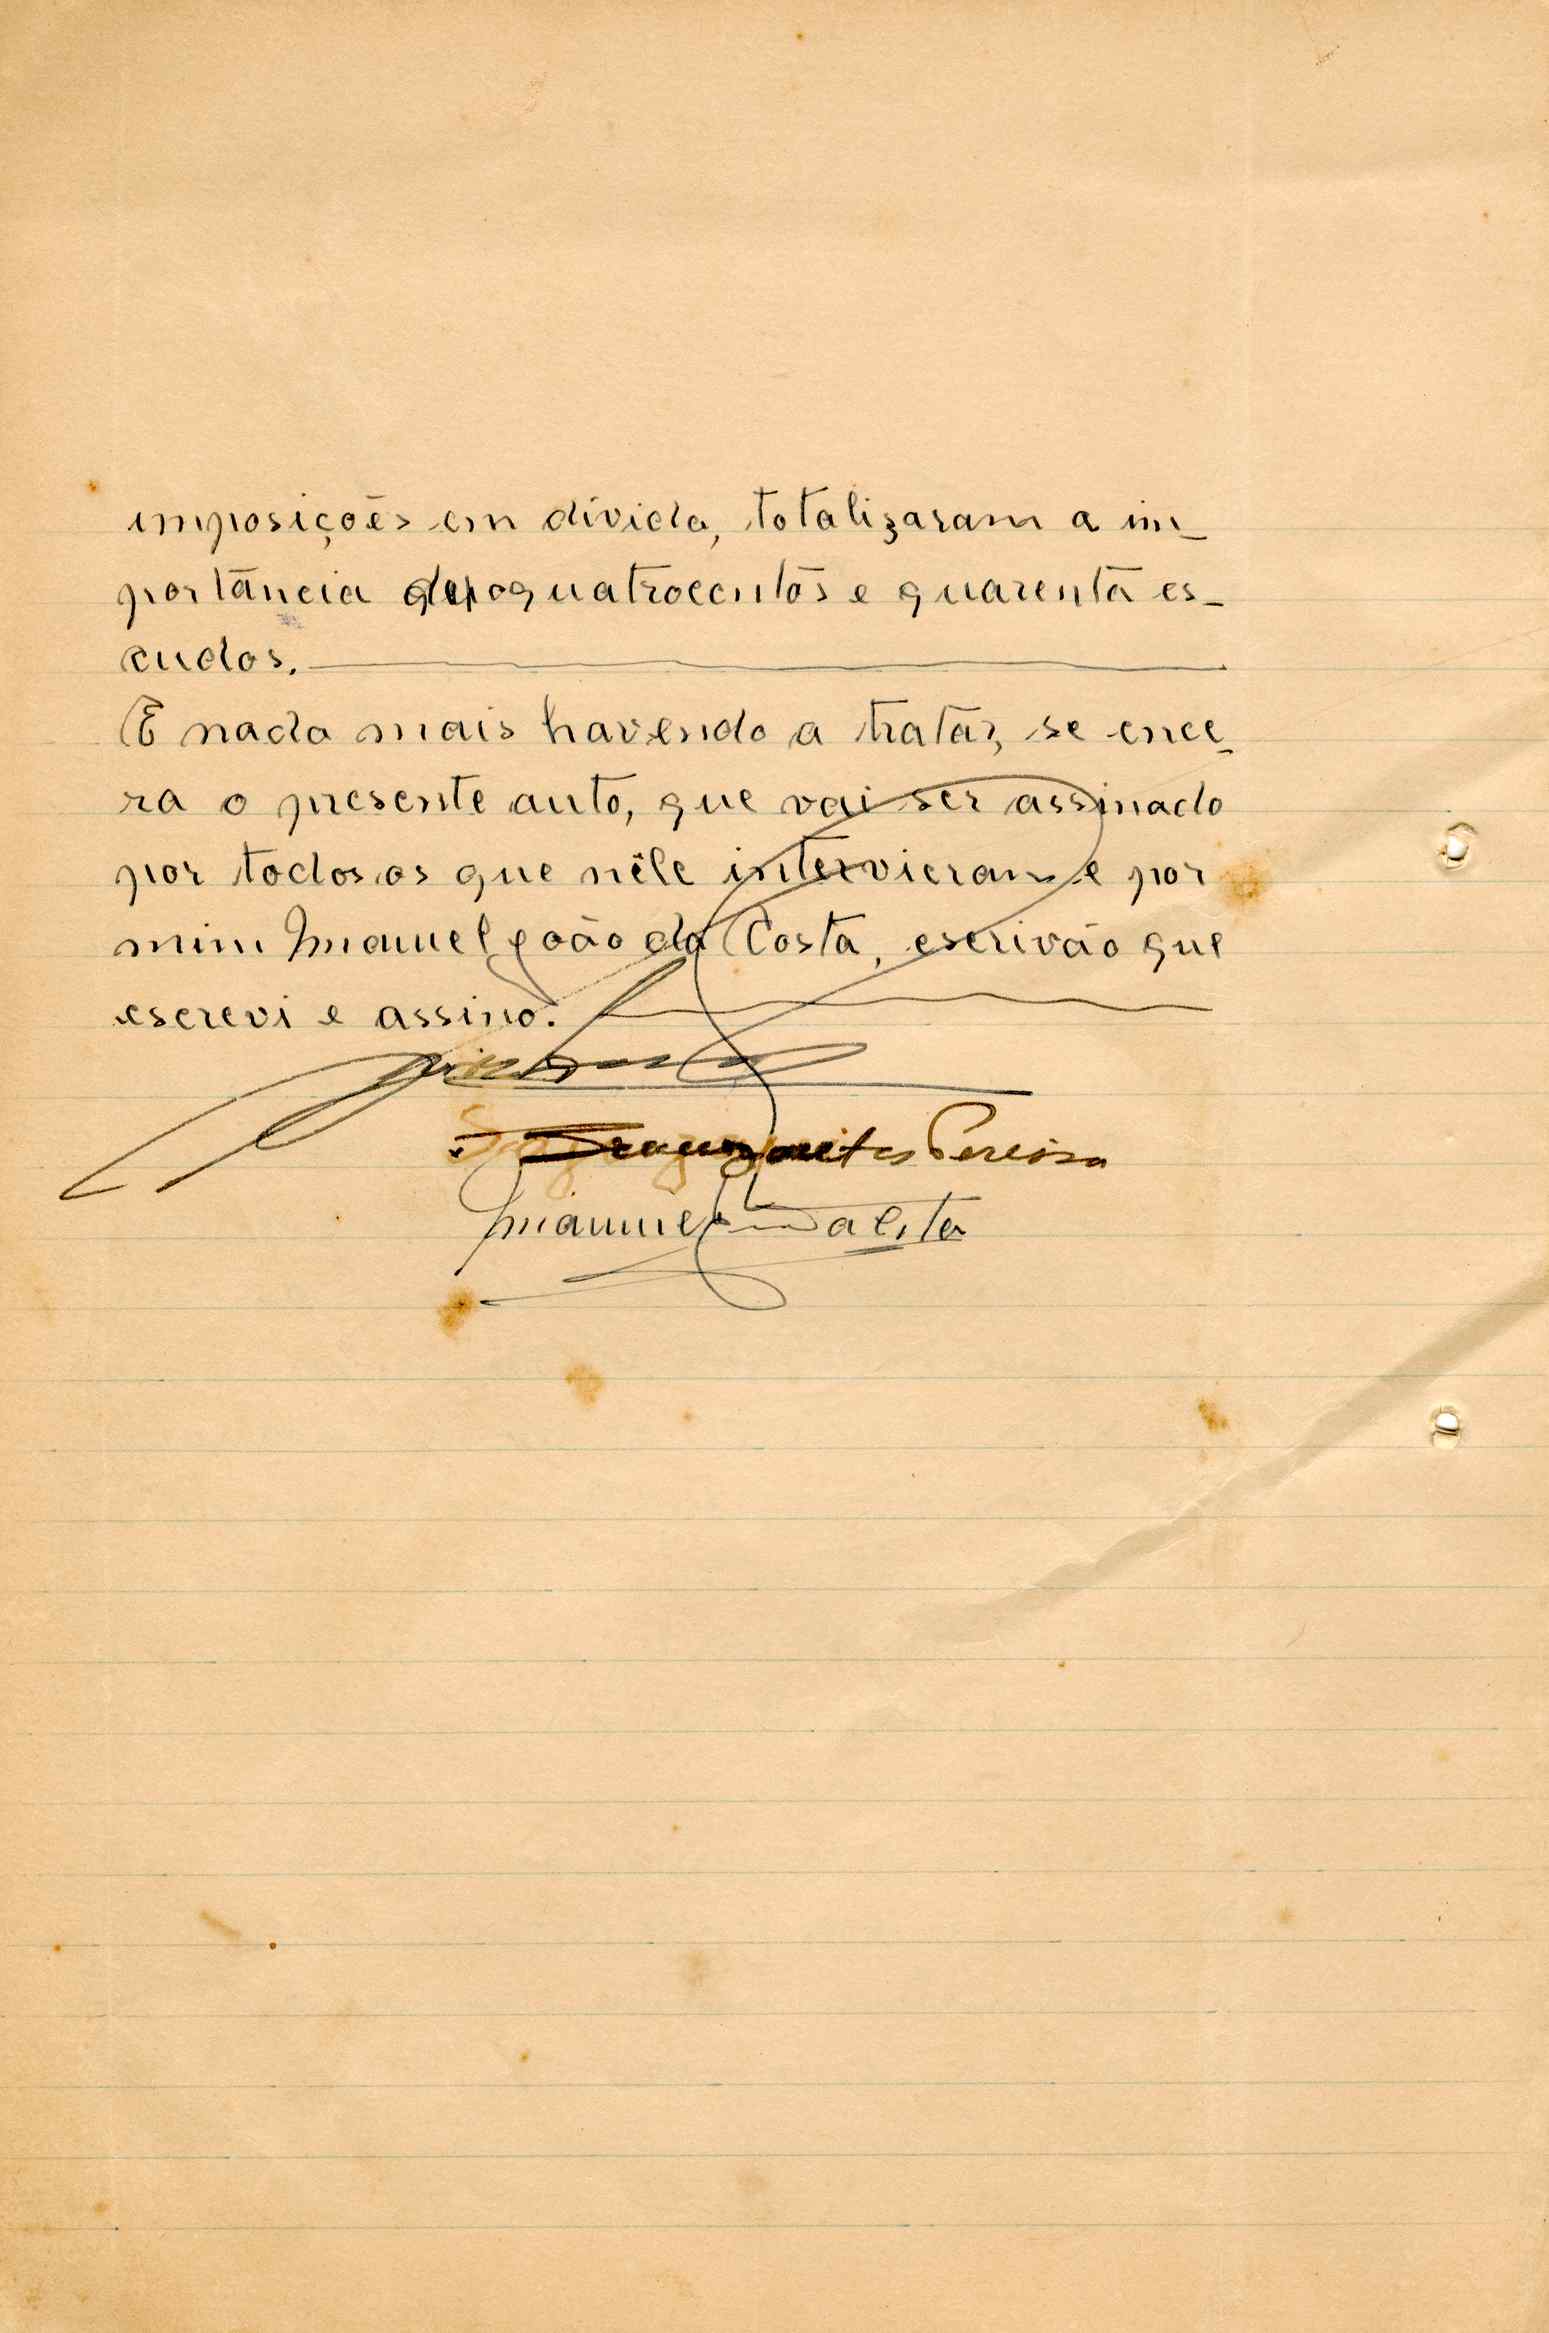 imposições em dívida, totalizaram a im-
portância de quatrocentos e quarenta es-
cudos.
E nada mais havendo a tratar, se ence-
ra o presente auto, que vai ser assinado
por todos os que nêle intervieram e por
mim Manuel João da Costa, escrivão que
escrevi e assino.
Pereira
Manuel Costa